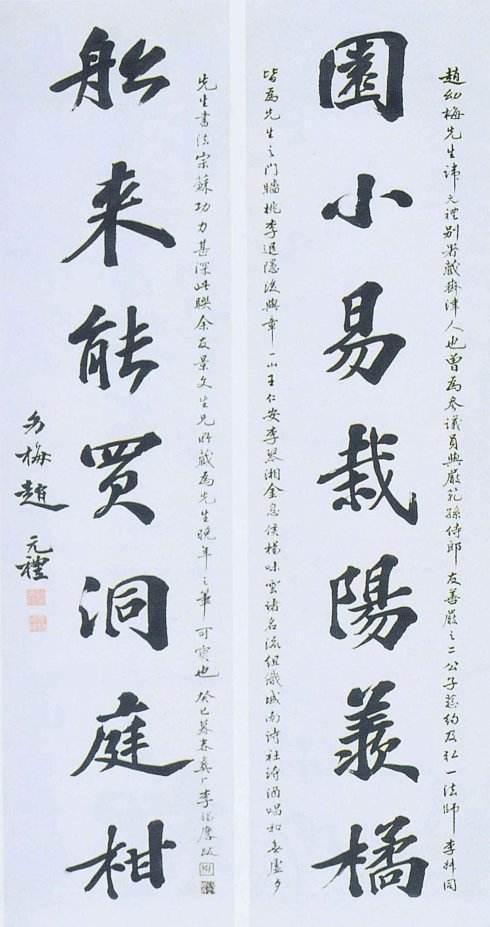 趙幼梅先生諱元禮別署藏齋津人也曾為參議員與嚴範孫侍郎友善嚴之二公子慈約及弘一法師李叔同
園小易栽陽羨橘
皆為先生之門牆桃李退隱後與章一山王仁安李琴湘金息侯楊味雲諸名流組織城南詩社詩酒唱和無虛夕
先生書法宗蘇功力甚深此聯余友景文生兄所藏為先生晚年之筆可寶也癸巳暮春李跋
船来能買洞庭柑
幼梅趙元禮